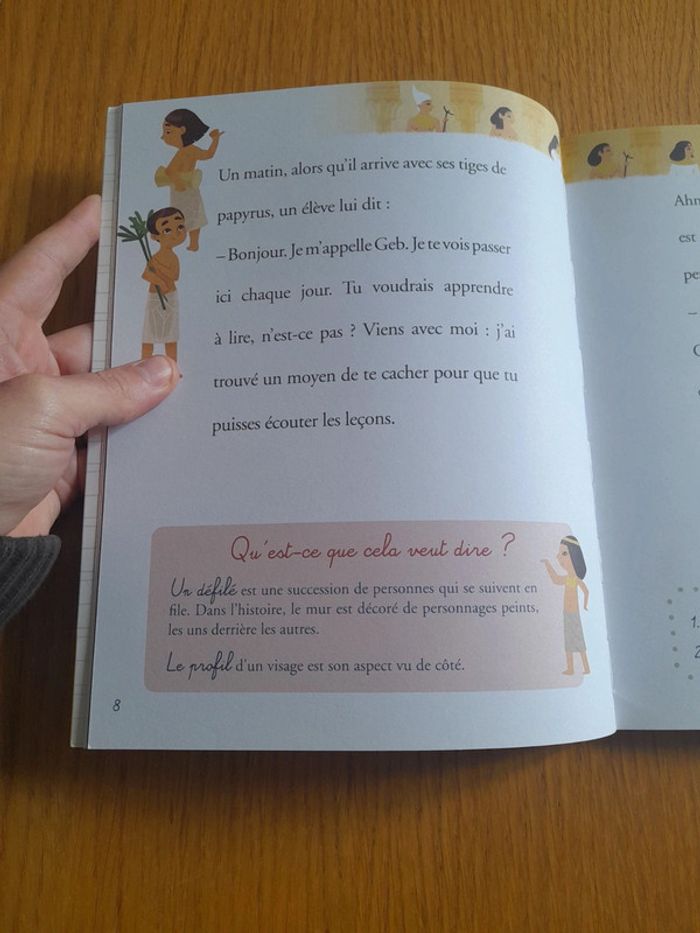 Un matin, alors qu'il arrive avec ses tiges de
papyrus, un élève lui dit :
– Bonjour. Je m'appelle Geb. Je te vois passer
ici chaque jour. Tu voudrais apprendre
à lire, n'est-ce pas ? Viens avec moi : j'ai
trouvé un moyen de te cacher pour que tu
puisses écouter les leçons.
Qu'est-ce que cela veut dire ?
Un défilé est une succession de personnes qui se suivent en
file. Dans l'histoire, le mur est décoré de personnages peints,
les uns derrière les autres.
Le profil d'un visage est son aspect vu de côté.
8
est
–
1.
2